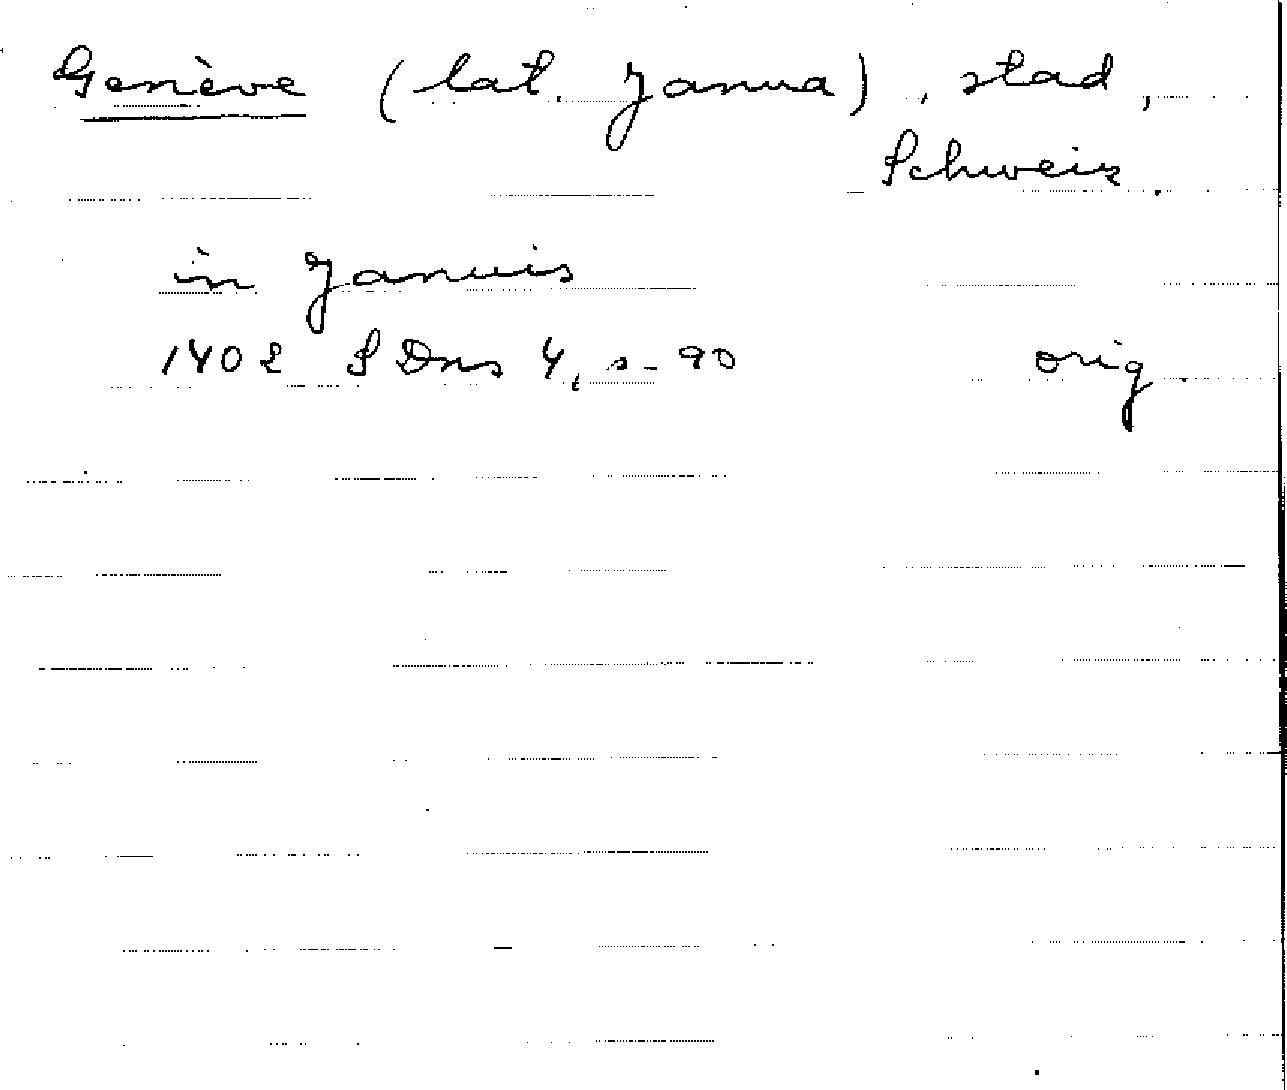 Genève (lat. Janua), stad,
Schweiz.
in Januis
1402 SDns 4, s. 90 orig.